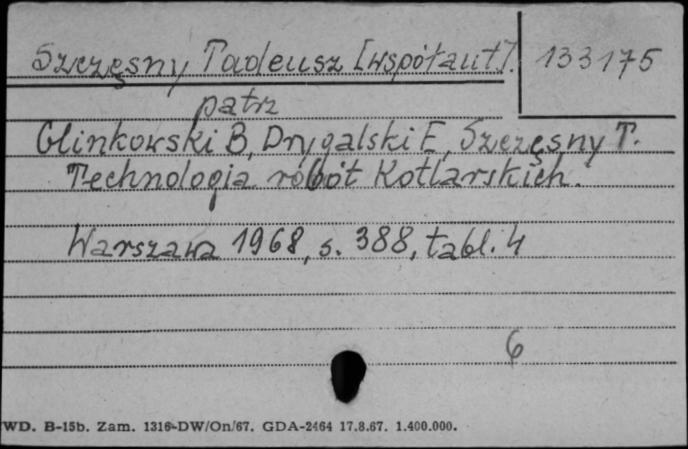 Szczęsny Tadeusz [współaut]. 133175
patrz
Glinkowski B, Drygalski E, Szczęsny T.
Technologia robót Kotlarskich.
Warszawa 1968, s. 388, tabl. 4
6
WD. B-15b. Zam. 1316-DW/On/67. GDA-2464 17.8.67. 1.400.000.